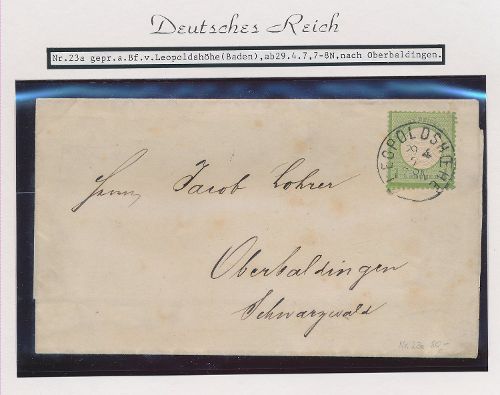 Deutsches Reich
Nr.23a gepr.a.Bf.v.Leopoldshöhe(Baden),ab29.4.7,7-8N,nach Oberbaldingen.
LEOPOLDSHOEHE
29 4
Herrn Jacob Lohrer
Oberbaldingen
Schwarzwald
Nr. 23a 80,-